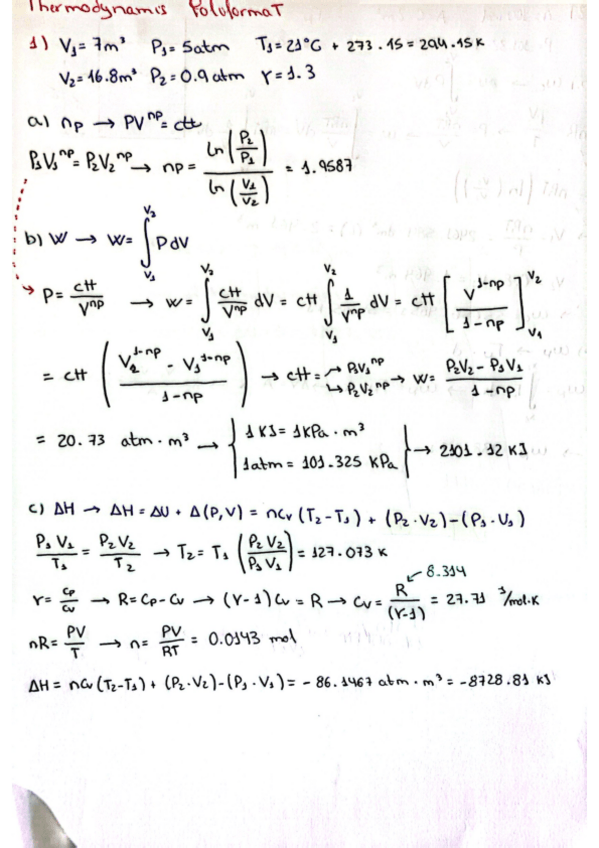 Thermodynamics PoliformaT
1) V₁=7m³ P₁=5atm T₁=21°C + 273.15=294.15K
V₂=16.8m³ P₂=0.9 atm γ=1.3
a) np → PV^np = ctt
P₁V₁^np = P₂V₂^np → np = ln(P₂/P₁) / ln(V₁/V₂) = 1.9587
b) W → W= ∫_V₁^V₂ P dV
P = ctt/V^np → W = ∫_V₁^V₂ ctt/V^np dV = ctt ∫_V₁^V₂ 1/V^np dV = ctt [V^1-np / 1-np]_V₁^V₂
= ctt (V₂^1-np - V₁^1-np / 1-np) → ctt = → P₁V₁^np ↳ P₂V₂^np → W= P₂V₂ - P₁V₁ / 1-np
= 20.73 atm·m³ → { 1 KJ = 1kPa·m³
1atm = 101.325 kPa } → 2101.12 KJ
c) ΔH → ΔH = ΔU + Δ(P,V) = ncv (T₂-T₁) + (P₂·V₂)-(P₁·V₁)
P₁V₁/T₁ = P₂V₂/T₂ → T₂= T₁ (P₂V₂/P₁V₁) = 127.073 K
8.314
γ= cp/cv → R=Cp-Cv → (γ-1)Cv = R → Cv= R/(γ-1) = 27.71 J/mol·K
nR= PV/T → n= PV/RT = 0.0143 mol
ΔH = ncv (T₂-T₁) + (P₂·V₂)-(P₁·V₁) = - 86.1467 atm·m³ = -8728.81 KJ